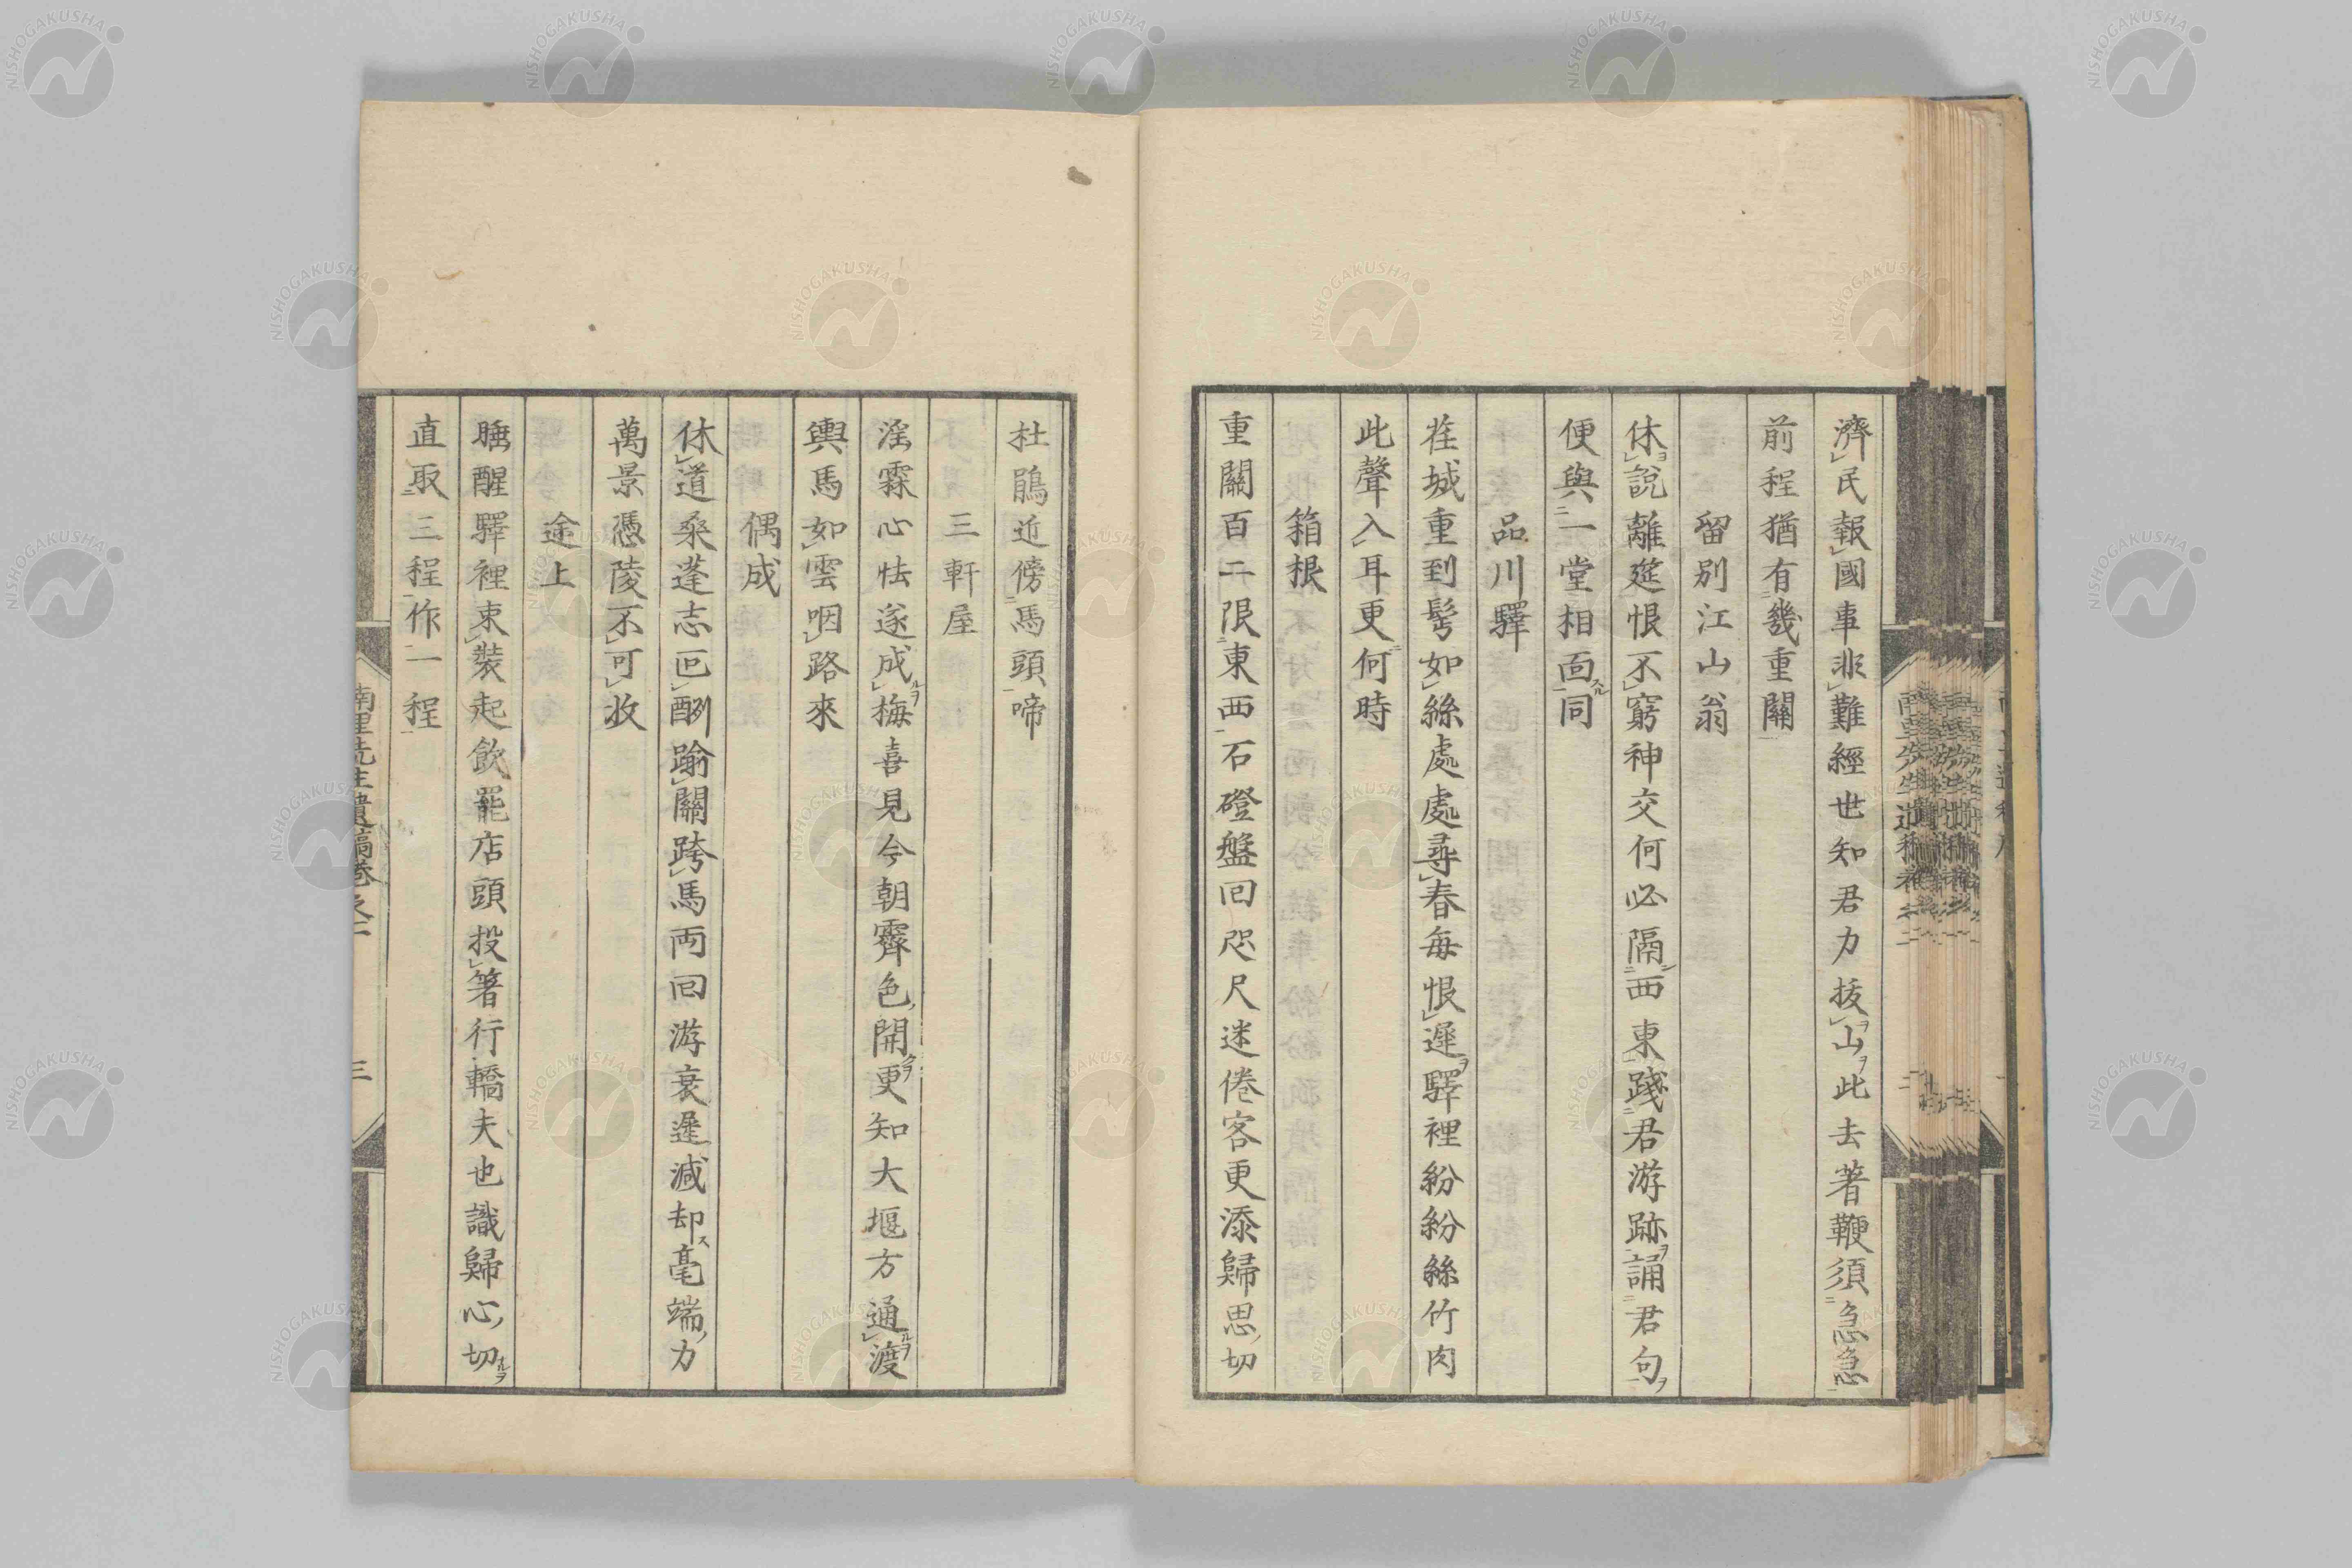 濟民報國事非難經世知君力拔山此去著鞭須急急
前程猶有幾重關
留別江山翁
休說離筵恨不窮神交何必隔西東踐君游跡誦君句
便與一堂相面同
品川驛
荏城重到髩如絲處處尋春每恨遲驛裡紛紛絲竹肉
此聲入耳更何時
箱根
重關百二限東西石磴盤回咫尺迷倦客更添歸思切
杜鵑近傍馬頭啼
三軒屋
淫霖心怯遂成梅喜見今朝霽色開更知大堰方通渡
輿馬如雲咽路來
偶成
休道桑蓬志叵酬踰關跨馬両回游衰遲減却毫端力
萬景憑陵不可收
途上
睡醒驛裡束裝起飲罷店頭投箸行轎夫也識歸心切
直取三程作一程
南里先生遺稿卷之二
三
NISHOGAKUSHA